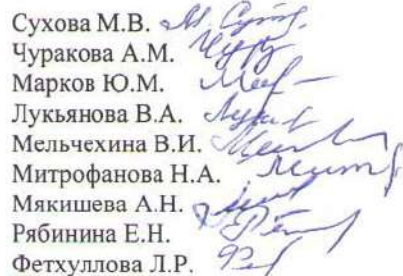 Сухова М.В.
Чуракова А.М.
Марков Ю.М.
Лукьянова В.А.
Мельчехина В.И.
Митрофанова Н.А.
Мякишева А.Н.
Рябинина Е.Н.
Фетхуллова Л.Р.